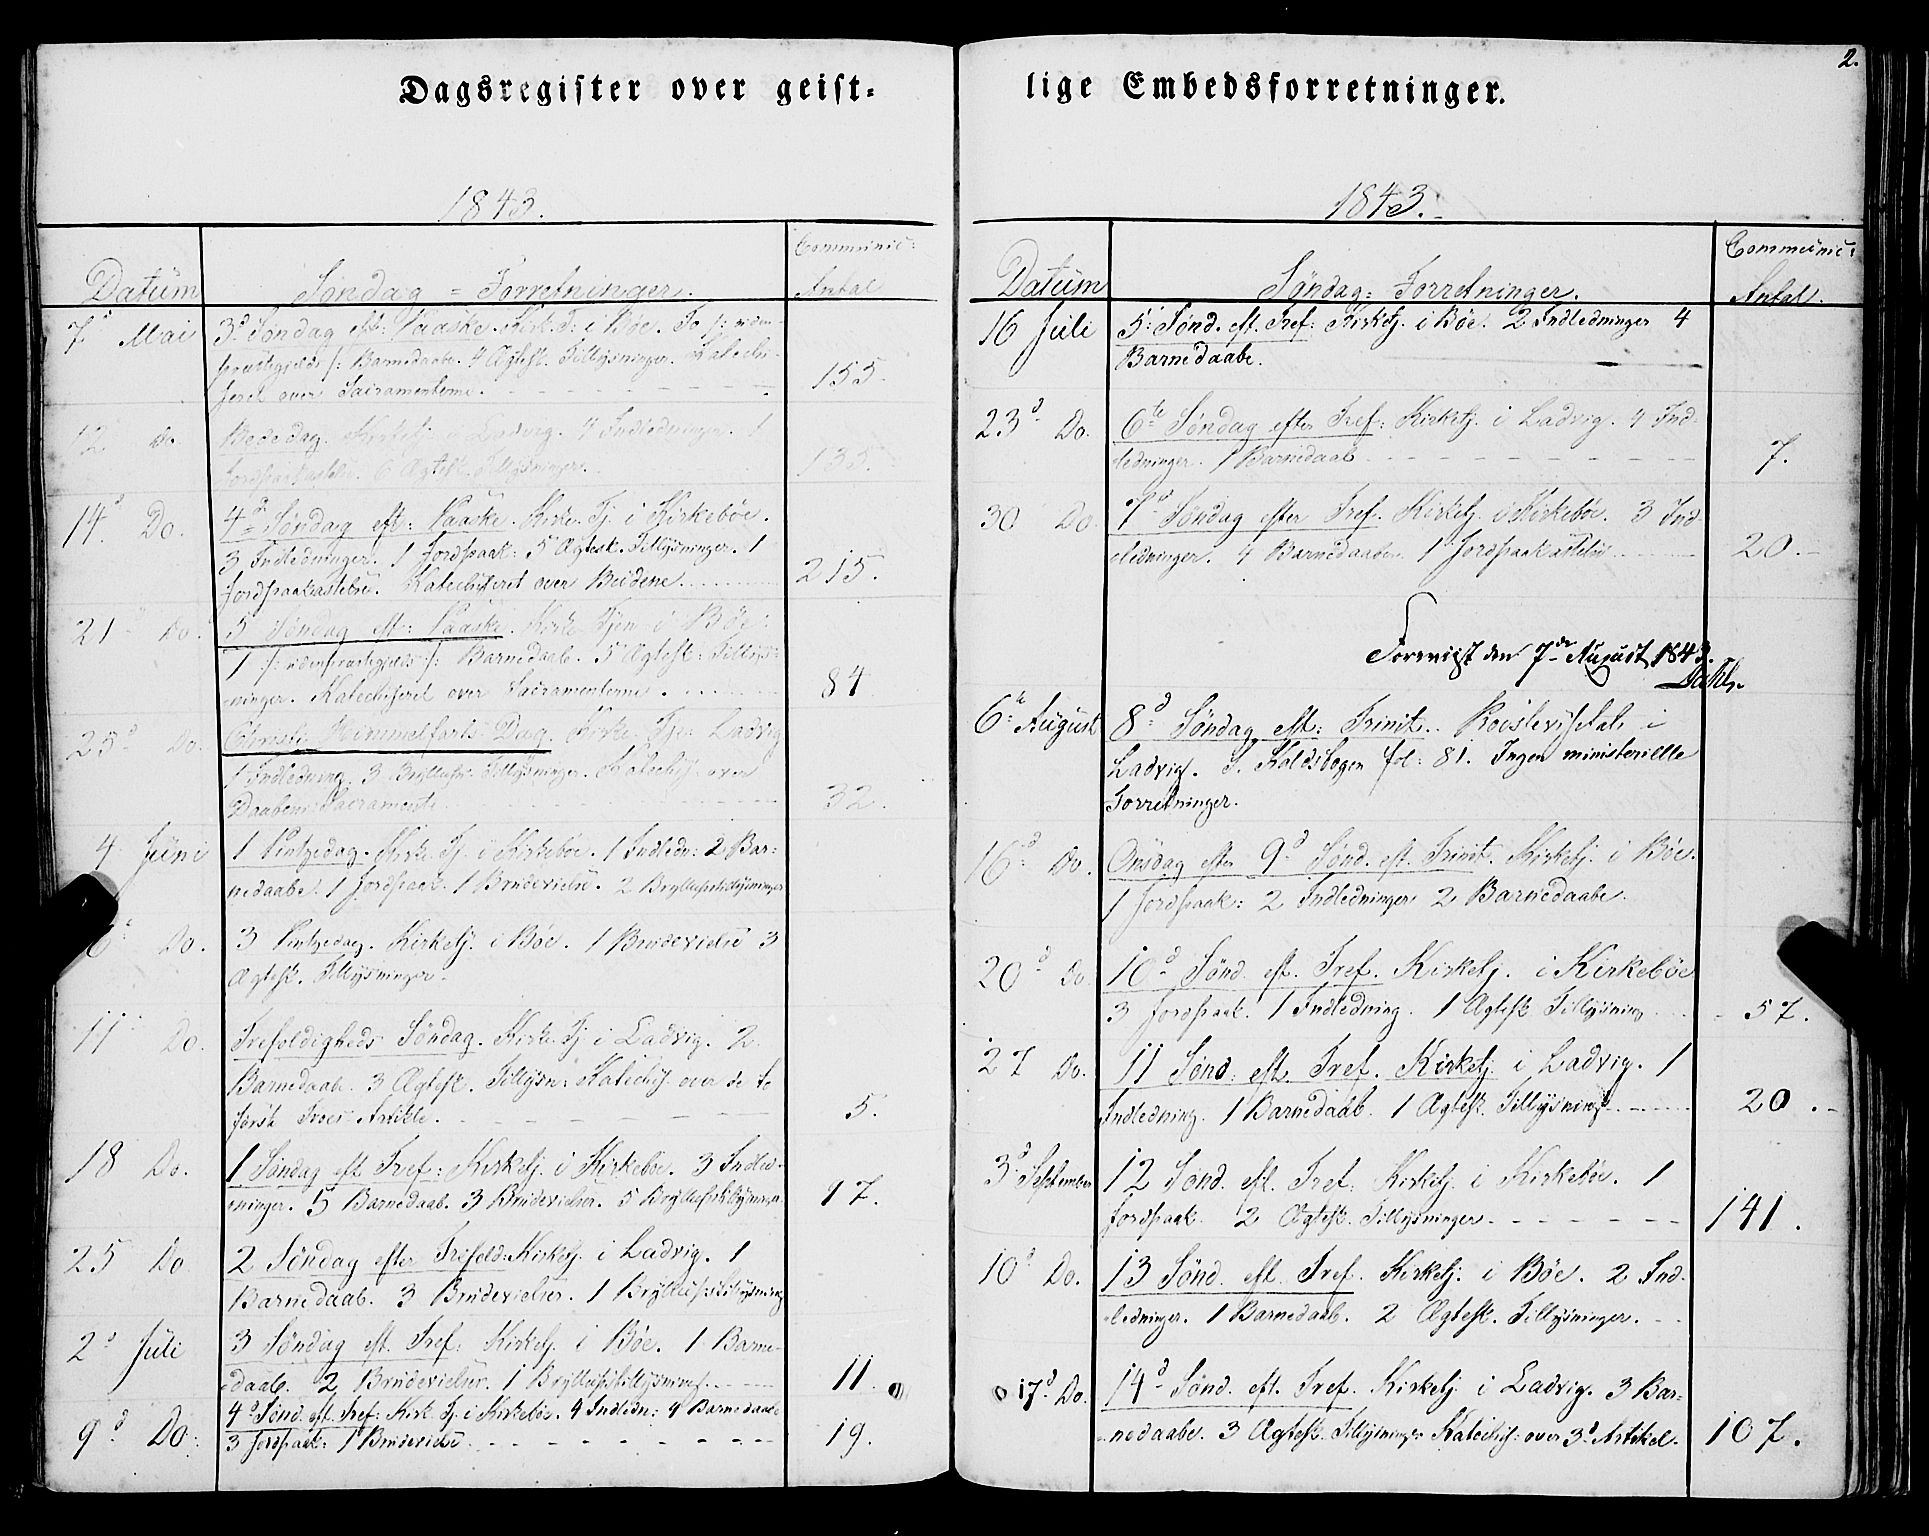 2.
Dagsregister over geist-
1843.
Datum
Søndag = Forretninger.
Communic:
Antal
7d Mai 3d Søndag eft: Paaske. Kirk. Tj: i Bøe. To /: uden-
præstegjelds :/ Barnedaabe. 4 Ægtesk. Tillysninger. Katechi-
seret over Sacramenterne. 155.
12 Do. Bededag. Kirketj. i Ladvig. 4 Indledninger. 1
Jordpaakastelse. 6 Ægtesk. Tillysninger. 135.
14d Do. 4d Søndag eft: Paaske. Kirke. Tj. i Kirkebøe.
3 Indledninger. 1 Jordpaak: 5 Ægtesk. Tillysninger. 1
Jordpaakastelse. Katechiseret over Budene. 215.
21 Do. 5 Søndag eft: Paaske. Kirke Tjen. i Bøe:
1 /: udenpræstegjelds :/ Barnedaab. 5 Ægtesk: Tillys-
ninger. Katechiseret over Sacramenterne. 84
25d Do. Christi Himmelfarts-Dag. Kirke Tje: Ladvig
1 Indledning. 3 Bryllups Tillysninger. Katechis. over
Daabens Sacramente. 32.
4 Juni 1 Pintsedag. Kirke. Tj. i Kirkebøe. 1 Indledn: 2 Bar-
nedaabe. 1 Jordpaak. 1 Brudevielse. 2 Bryllupstillysninger
6 Do. 3 Pintsedag. Kirketj. i Bøe. 1 Brudevielse 3
Ægtesk. Tillysninger.
11 Do. Trefoldigheds Søndag. Kirke. Tj. i Ladvig. 2
Barnedaab. 3 Ægtesk. Tillysn: Katechis. over de to
første Troes Artikle. 5.
18 Do. 1 Søndag eft Tref: Kirketj. i Kirkebøe. 3 Indled-
ninger. 5 Barnedaab. 3 Brudevielser. 5 Bryllupstillysninger. 97.
25 Do 2 Søndag efter Trefold: Kirketj. i Ladvig. 1
Barnedaab. 3 Brudevielser. 1 Bryllupstillysning
2d Juli 3 Søndag eft. Tref: Kirketj. i Bøe. 1 Barne-
daab. 2 Brudevielser. 1 Bryllupstillysning. 11.
9d Do. 4d Sønd. eft. Tref: Kirk. Tj. i Kirkebøe. 4 Indledn: 4 Barnedaabe
3 Jordpaak: 1 Brudevielse. 19.
lige Embedsforretninger.
1843.
Datum
Søndag: Forretninger.
Communic:
Antal.
16 Juli 5: Sønd. eft. Tref: Kirketj. i Bøe. 2 Indledninger 4
Barnedaabe.
23d Do. 6te Søndag efter Tref: Kirketj. i Ladvig. 4 Ind-
ledninger. 1 Barnedaab 7.
30 Do. 7d Søndag efter Tref. Kirketj. i Kirkebøe. 3 Ind-
ledninger. 4 Barnedaabe. 1 Jordpaakastelse 20.
Foreviist den 7de August 1843.
Dahl.
6te August 8d Søndag eft: Trinit. i
Ladvig. S. Kaldsbogen fol: 81. Ingen ministerielle
Forretninger.
16d Do. Onsdag efter 9d Sønd. eft. Trinit. Kirketj. i Bøe.
1 Jordpaak: 2 Indledninger 2 Barnedaabe.
20d Do. 10d Sønd. eft. Tref. Kirketj. i Kirkebøe
3 Jordpaak. 1 Indledning. 1 Ægtesk Tillysning 57.
27 Do. 11 Sønd: eft. Tref. Kirketj. i Ladvig. 1
Indledning. 1 Barnedaab. 1 Ægtesk. Tillysning. 20.
3d September 12 Sønd. eft. Tref: Kirketj. i Kirkebøe. 1
Jordpaak. 2 Ægtesk. Tillysninger. 141.
10d Do. 13 Sønd. eft. Tref. Kirketj. i Bøe. 2 Ind-
ledninger. 1 Barnedaab. 2 Ægtesk. Tillysninger.
17d Do. 14d Sønd. eft. Tref. Kirketj. i Ladvig. 3 Bar-
nedaabe. 3 Ægtesk. Tillysninger Katechis: over 3d Artikel. 107.